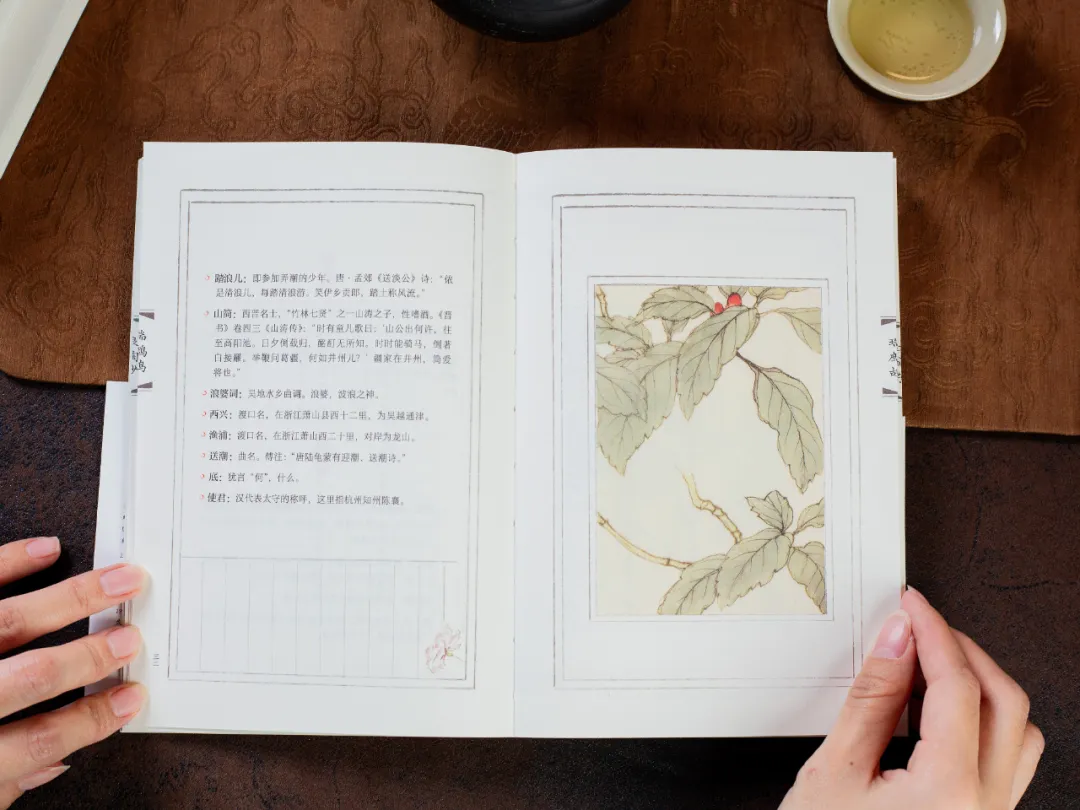 踏浪儿：即参加弄潮的少年。唐·孟郊《送淡公》诗：“侬
是清浪儿，每踏清浪游。笑伊乡贡郎，踏土称风流。”
山简：西晋名士，“竹林七贤”之一山涛之子，性嗜酒。《晋
书》卷四三《山涛传》：“时有童儿歌曰：‘山公出何许，往
至高阳池。日夕倒载归，酩酊无所知。时时能骑马，倒著
白接䍦。举鞭问葛疆，何如并州儿？’疆家在并州，简爱
将也。”
浪婆词：吴地水乡曲调。浪婆，波浪之神。
西兴：渡口名，在浙江萧山县西十二里，为吴越通津。
渔浦：渡口名，在浙江萧山西二十里，对岸为龙山。
送潮：曲名。傅注：“唐陆龟蒙有迎潮、送潮诗。”
底：犹言“何”，什么。
使君：汉代表太守的称呼，这里指杭州知州陈襄。